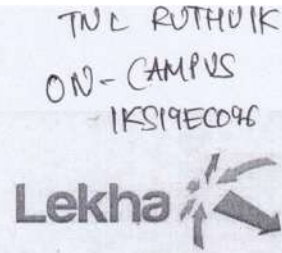 TNL RUTHVIK
ON-CAMPUS
1KS19EC096
Lekha